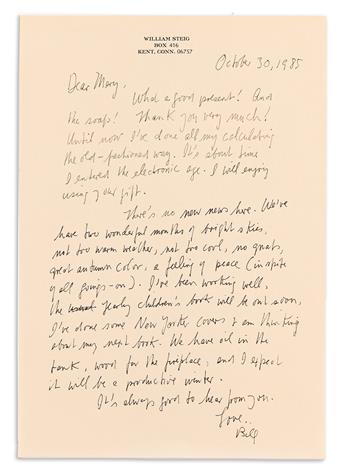 WILLIAM STEIG
BOX 416
KENT, CONN. 06757
October 30, 1985
Dear Mary,
What a good present! And
the soaps! Thank you very much!
Until now I've done all my calculating
the old-fashioned way. It's about time
I entered the electronic age. I will enjoy
using your gift.
There's no new news here. We've
have two wonderful months of bright skies,
not too warm weather, not too cool, no gnats,
great autumn color, a feeling of peace (in spite
of all goings-on). I've been working well,
the usual yearly children's book will be out soon,
I've done some New Yorker covers & am thinking
about my next book. We have oil in the
tank, wood for the fireplace, and I expect
it will be a productive winter.
It's always good to hear from you.
Love,
Bill